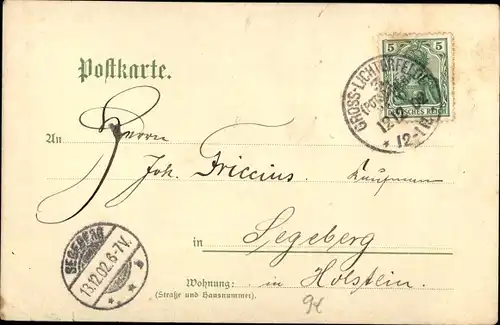 5 5
DEUTSCHES REICH
GROSS-LICHTERFELDE
12.12.
* 12-1
Postkarte.
An Herrn
Joh. Friccius, Kaufmann
in Segeberg
Wohnung: in Holstein.
(Straße und Hausnummer).
SEGEBERG
13.12.02.6-7V.
94